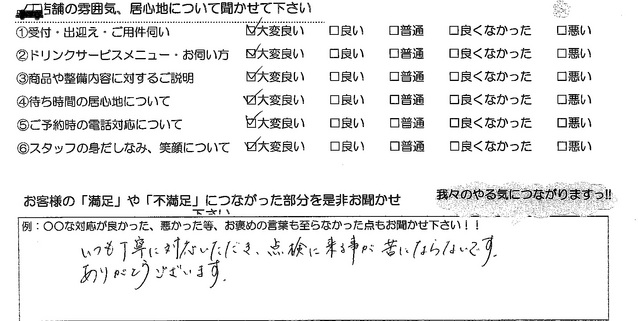 店舗の雰囲気、居心地について聞かせて下さい
①受付・出迎え・ご用件伺い ☑大変良い □良い □普通 □良くなかった □悪い
②ドリンクサービスメニュー・お伺い方 ☑大変良い □良い □普通 □良くなかった □悪い
③商品や整備内容に対するご説明 ☑大変良い □良い □普通 □良くなかった □悪い
④待ち時間の居心地について ☑大変良い □良い □普通 □良くなかった □悪い
⑤ご予約時の電話対応について ☑大変良い □良い □普通 □良くなかった □悪い
⑥スタッフの身だしなみ、笑顔について ☑大変良い □良い □普通 □良くなかった □悪い
お客様の「満足」や「不満足」につながった部分を是非お聞かせ
下さい
我々のやる気につながりますっ!!
例：〇〇な対応が良かった、悪かった等、お褒めの言葉も至らなかった点もお聞かせ下さい！！
いつも丁寧に対応いただき、点検に来る事が苦にならないです。
ありがとうございます。